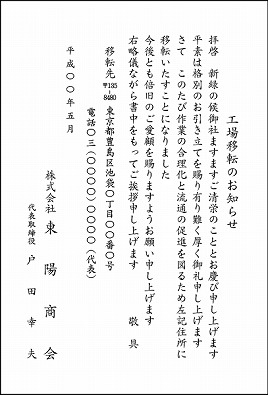 工場移転のお知らせ
拝啓　新緑の候御社ますますご清栄のこととお慶び申し上げます
平素は格別のお引き立てを賜り有り難く厚く御礼申し上げます
さて　このたび作業の合理化と流通の促進を図るため左記住所に
移転いたすことになりました
今後とも倍旧のご愛顧を賜りますようお願い申し上げます
右略儀ながら書中をもってご挨拶申し上げます　敬具
移転先　〒135-8480　東京都豊島区池袋〇丁目〇〇番〇号
電話〇三（〇〇〇〇）〇〇〇〇（代表）
平成〇〇年五月
株式会社　東陽商会
代表取締役　戸田幸夫